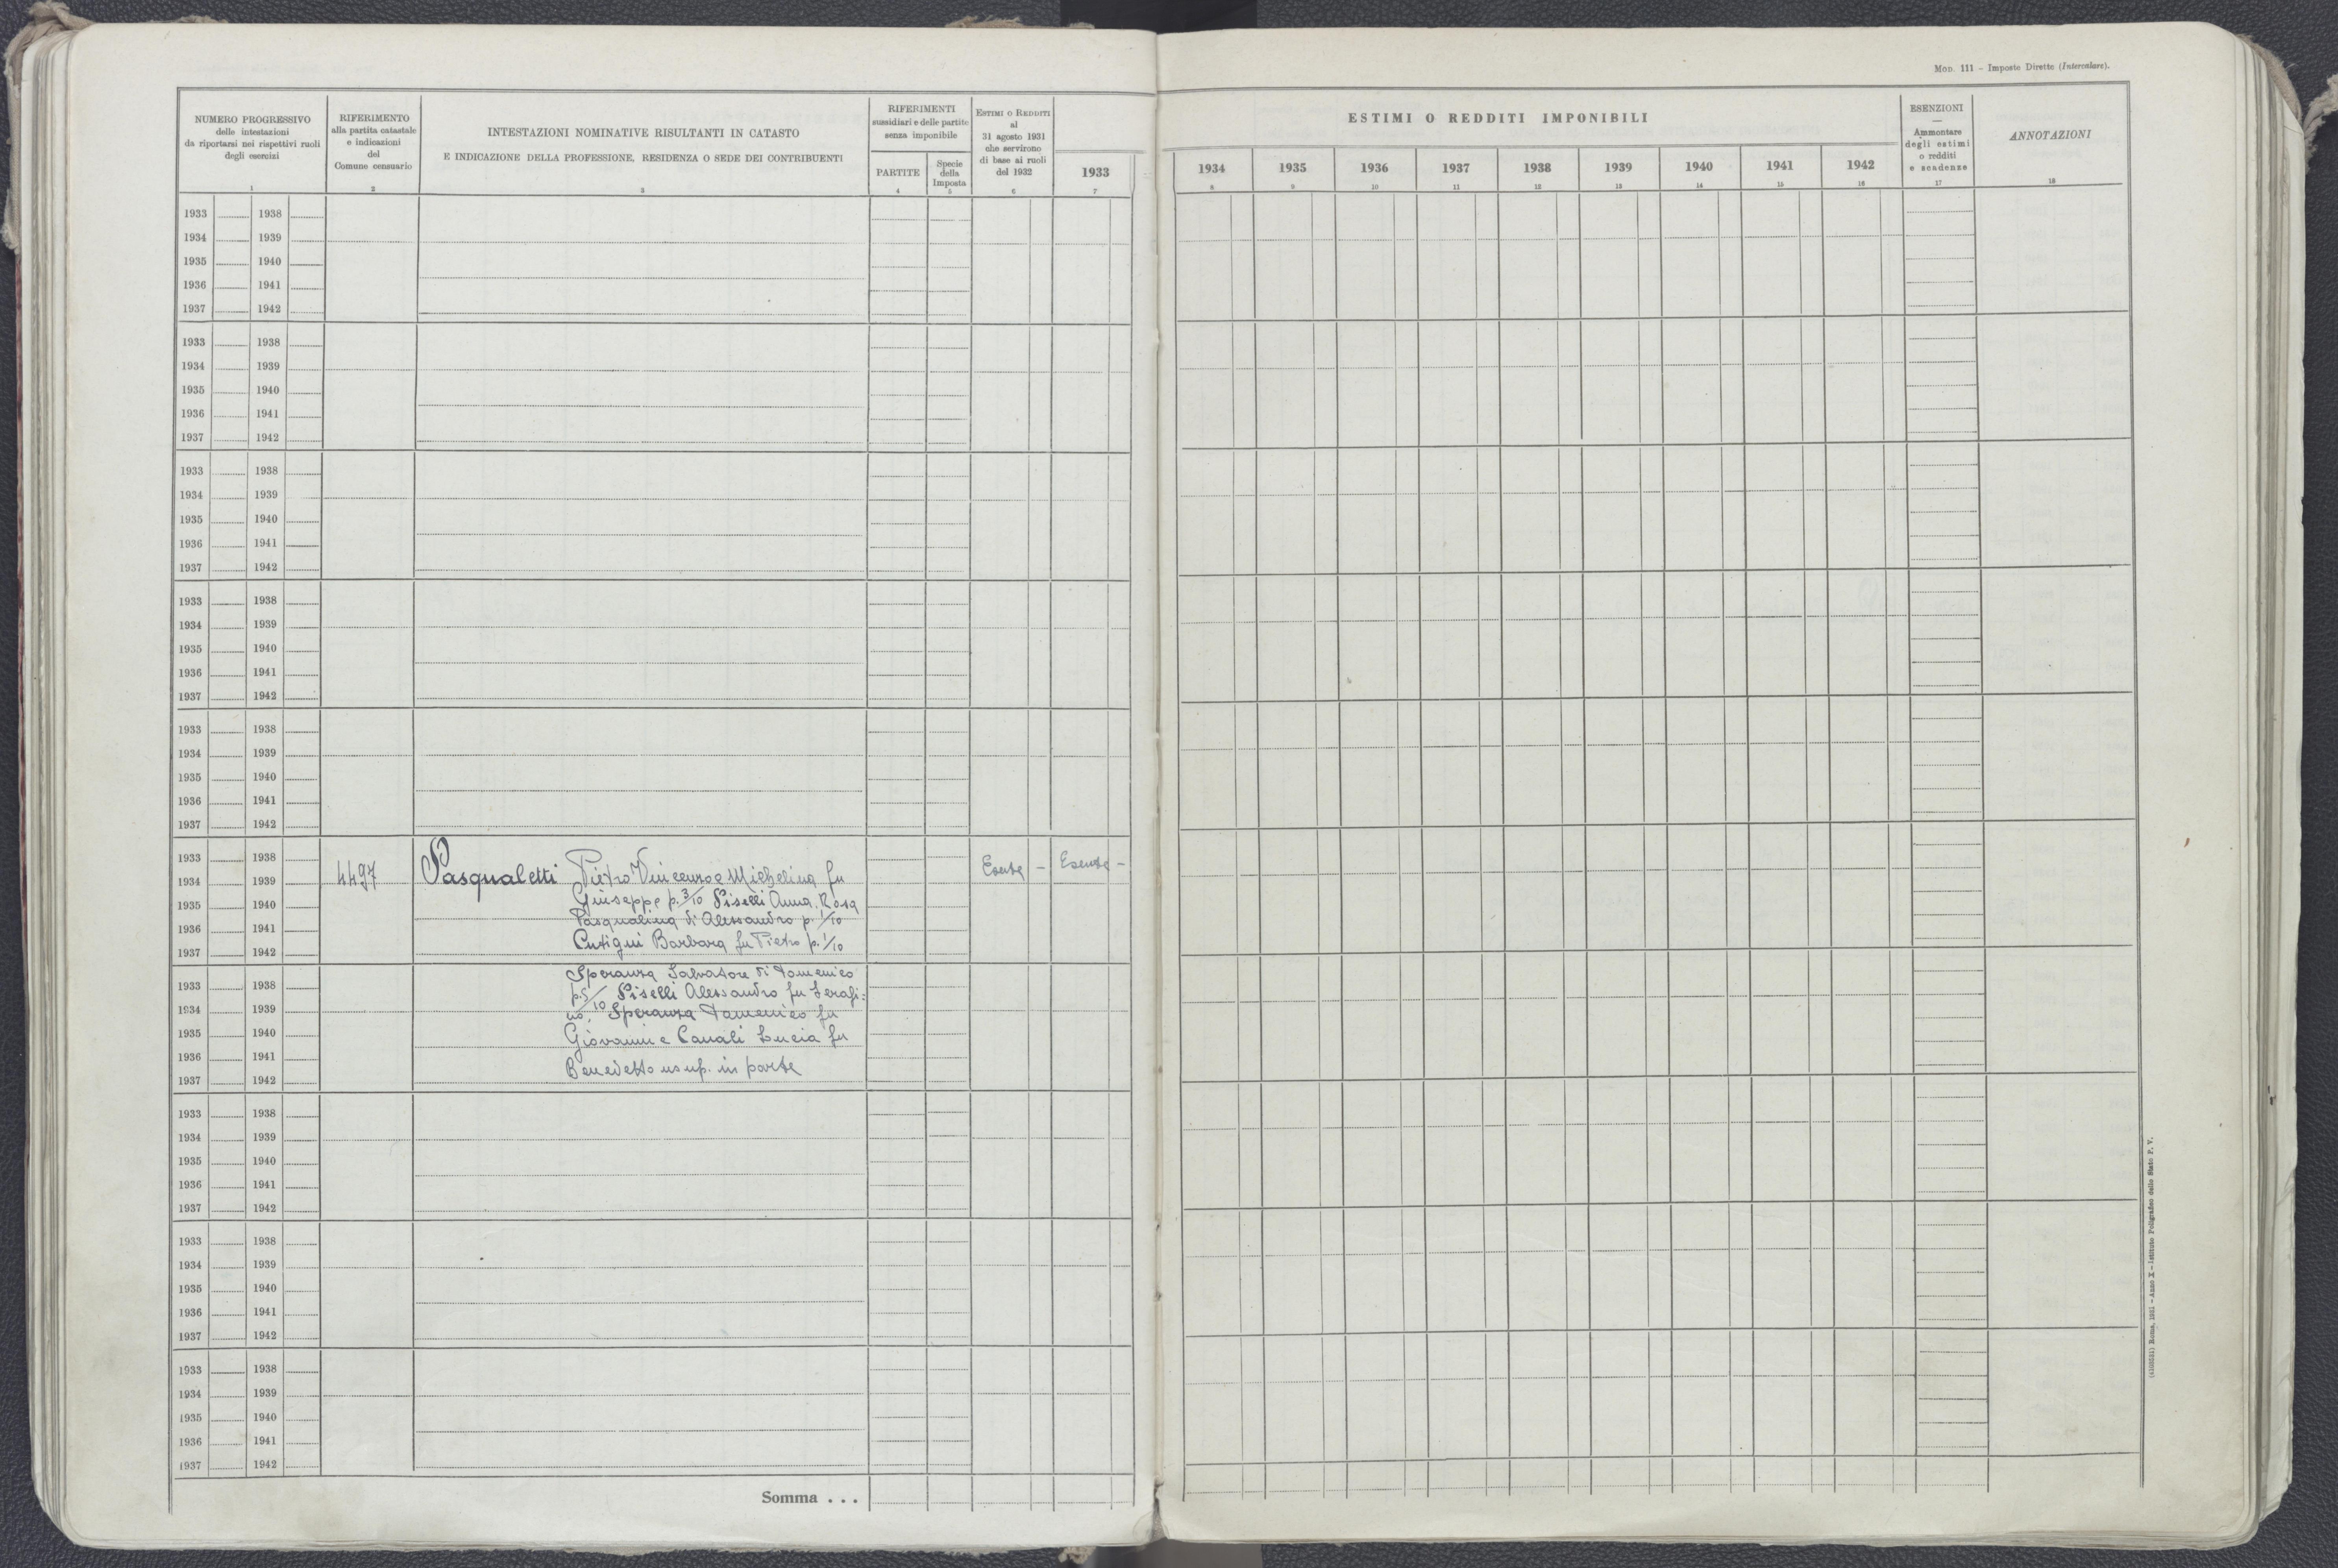 MOD. 111 - Imposte Dirette (Intercalare).
NUMERO PROGRESSIVO
delle intestazioni
da riportarsi nei rispettivi ruoli
degli esercizi
1
RIFERIMENTO
alla partita catastale
e indicazioni
del
Comune censuario
2
INTESTAZIONI NOMINATIVE RISULTANTI IN CATASTO
E INDICAZIONE DELLA PROFESSIONE, RESIDENZA O SEDE DEI CONTRIBUENTI
3
RIFERIMENTI
sussidiari e delle partite
senza imponibile
PARTITE
4
Specie
della
Imposta
5
ESTIMI O REDDITI
al
31 agosto 1931
che servirono
di base ai ruoli
del 1932
6
1933
7
ESTIMI O REDDITI IMPONIBILI
1934 1935 1936 1937 1938 1939 1940 1941 1942
8 9 10 11 12 13 14 15 16
ESENZIONI
—
Ammontare
degli estimi
o redditi
e scadenze
17
ANNOTAZIONI
18
1933 1938
1934 1939
1935 1940
1936 1941
1937 1942
1933 1938
1934 1939
1935 1940
1936 1941
1937 1942
1933 1938
1934 1939
1935 1940
1936 1941
1937 1942
1933 1938
1934 1939
1935 1940
1936 1941
1937 1942
1933 1938
1934 1939
1935 1940
1936 1941
1937 1942
1933 1938
1934 1939
1935 1940
1936 1941
1937 1942
4497
Pasqualetti Pietro Vincenzo e Michelina fu
Giuseppe p. 3/10 Piselli Anna, Rosa
Pasqualina di Alessandro p. 1/10
Cutigni Barbara fu Pietro p. 1/10
Esente - Esente -
1933 1938
1934 1939
1935 1940
1936 1941
1937 1942
Speranza Salvatore di Domenico
p. 5/10 Piselli Alessandro fu Serafi=
no, Speranza Domenico fu
Giovanni e Canali Lucia fu
Benedetto usup. in parte
1933 1938
1934 1939
1935 1940
1936 1941
1937 1942
1933 1938
1934 1939
1935 1940
1936 1941
1937 1942
1933 1938
1934 1939
1935 1940
1936 1941
1937 1942
Somma . . .
Roma, 1931 - Anno X - Istituto Poligrafico dello Stato P. V.